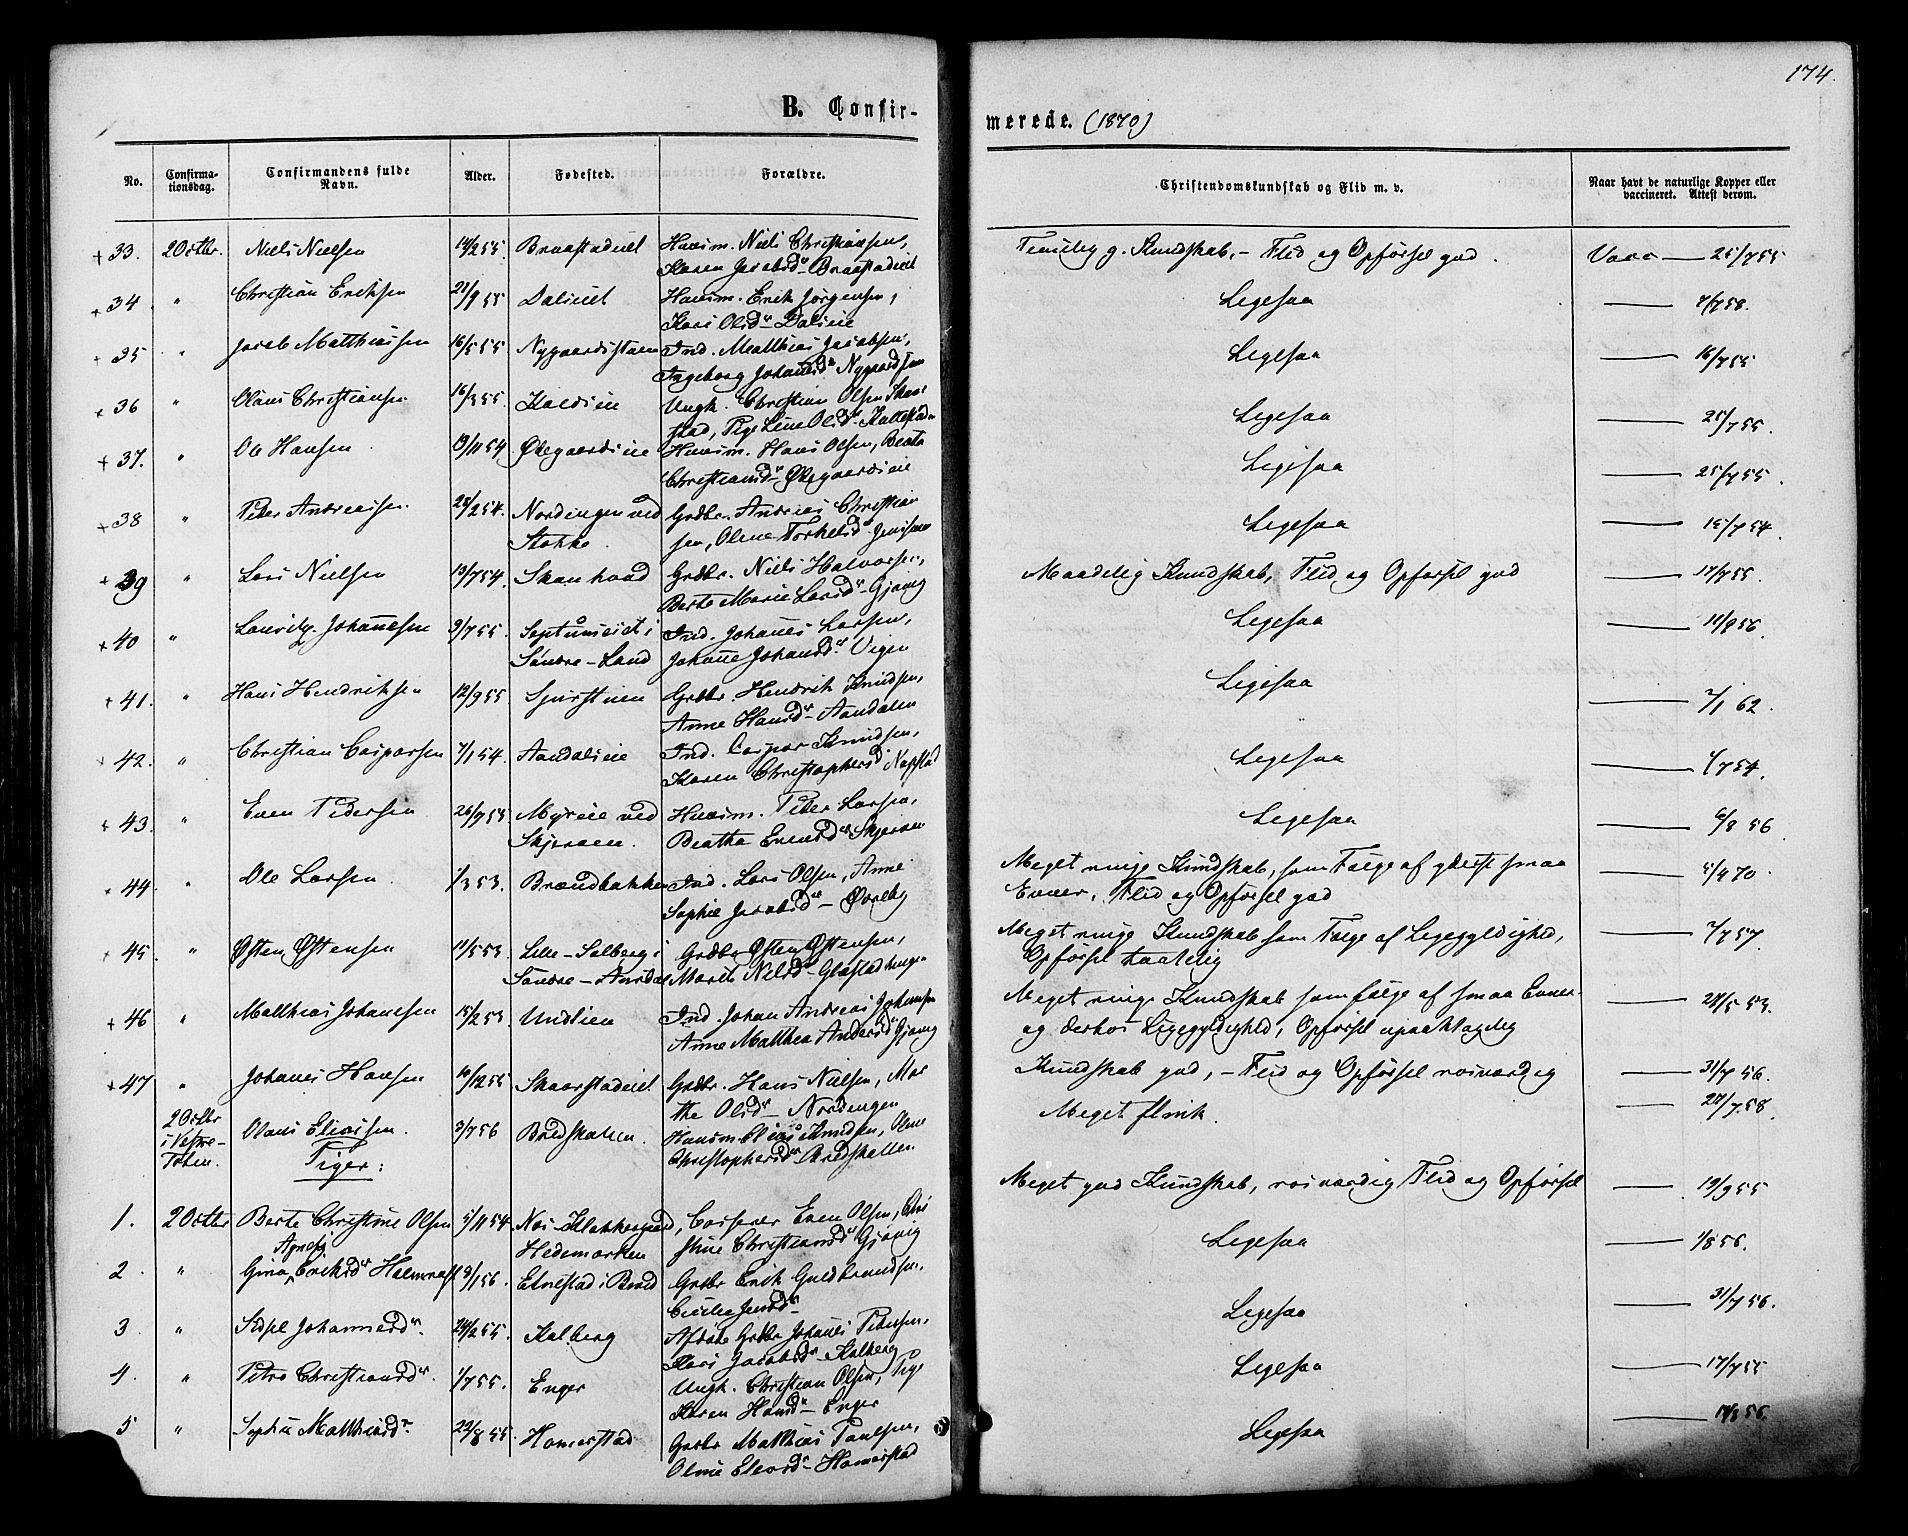 174.
B. Confir-
merede. (1870)
No.
Confirma-
tionsdag.
Confirmandens fulde
Navn.
Alder.
Fødested.
Forældre.
Christendomskundskab og Flid m. v.
Naar havt de naturlige Kopper eller
vaccineret. Attest derom.
+ 33. 2 Octbr. Niels Nielsen 14/2 55 Braastadeiet Huusm. Niels Christiansen, Temlig g. Kundskab, – Flid og Opførsel god. Vacc — 25/7 55
Karen Jacobsd. – Braastadeiet
+ 34 " Christian Eriksen 21/9 55 Dalseiet Huusm. Erik Jørgensen, Ligesaa — 7/7 58.
Kari Olsd. – Dalseie
+ 35 " Jacob Matthiassen 16/5 55 Nygaardsstuen Ind. Matthias Jacobsen, Ligesaa — 16/7 55
Ingeborg Johansd. Nygaardstuen
+ 36 " Olaus Christiansen 16/3 55 Ungk. Christian Olsen Skaar- Ligesaa — 25/7 55.
stad, Pige Line Olsd.
+ 37. " Ole Hansen 19/11 54 Øvegaardseie Huusm. Hans Olsen, Beata Ligesaa — 25/7 55.
Christiansd. – Øvegaardseie
+ 38 " Peder Andreassen 28/2 54. Nordengen ved Grdbr. Andreas Christian Ligesaa — 15/7 54
Stokke. sen, Oline Torkelsd.
+ 39 " Lars Nielsen 13/7 54. Grdbr. Niels Halvorsen, Maadelig Kundskab, Flid og Opførsel god — 17/7 55.
Berte Marie Larsd. – Gjøvig
+ 40 " Lauritz Johannesen 9/7 55. i Ind. Johannes Larsen, Ligesaa — 11/8 56.
Søndre-Land Johanne Johansd. Vigen
+ 41. " Hans Hendriksen 12/9 55 Grdbr. Hendrik Knudsen, Ligesaa — 7/1 62.
Anne Hansd. – Aandalen
+ 42. " Christian Casparsen 7/1 54. Aandalseie Ind. Caspar Knudsen, Ligesaa — 1/7 54.
Karen Christophersd.
+ 43. " Even Pedersen 26/7 55 Myreie ved Huusm. Peder Larsen, Ligesaa — 6/8 56
Skjeraen. Beatha Evensd.
+ 44. " Ole Larsen 1/3 53. Brændbakken Ind. Lars Olsen, Anne Meget ringe Kundskab, som Følge af yderst smaa — 4/4 70.
Sophie Jacobsd. – Øvreby Evner, Flid og Opførsel god
+ 45. " Østen Østensen 11/5 53. Lille-Solberg i Grdbr. Østen Østensen, Meget ringe Kundskab som Følge af Ligegyldighed, — 7/7 57.
Søndre-Aurdal Marit Nilsd. – Opførsel taalelig
+ 46 " Matthias Johannesen 15/2 53. Undlien Ind. Johan Andreas Johansen Meget ringe Kundskab som følge af smaa Evner — 28/5 53.
Anne Matthea Andersd. Gjøvig og derhos Ligegyldighed, Opførsel upaaklagelig
+ 47 " Johannes Hansen 10/12 55 Skaarstadeiet Grdbr. Hans Nielsen, Mar Kundskab god, – Flid og Opførsel rosværdig — 31/7 56.
the Olsd. – Nordengen
2 Octbr Olaus Eliassen. 3/7 56 Bredskallen. Huusm. Elias Knudsen, Oline Meget flink. — 27/7 58.
i Vestre- Christophersd. – Bredskallen
Toten.
Piger:
1. 2 Octbr Berte Christine Olsen 5/11 54 Carserer Even Olsen, Chri Meget god Kundskab, rosværdig Flid og Opførsel — 19/9 55
Hedemarken stine Christiansd. Gjøvig
2. " Gina Agnes Eriksd. 9/1 56. Grdbr Erik Guldbrandsen, Ligesaa — 1/8 56.
Cicilie Jensd. –
3. " Sidsel Johannesd. 24/2 55. Kalberg Afdøde Grdbr Johannes Pedersen, Ligesaa — 31/7 56.
Kari Jacobsd. – Kalberg
4. " Petra Christiansd. 1/7 55. Enger Ungk. Christian Olsen, Pige Ligesaa — 17/7 55
Karen Hansd. – Enger
5 " Sophie Matthiasd. 22/8 55. Homerstad Grdbr Matthias Paulsen, Ligesaa — 14/8 56.
Oline Elevsd. – Homerstad